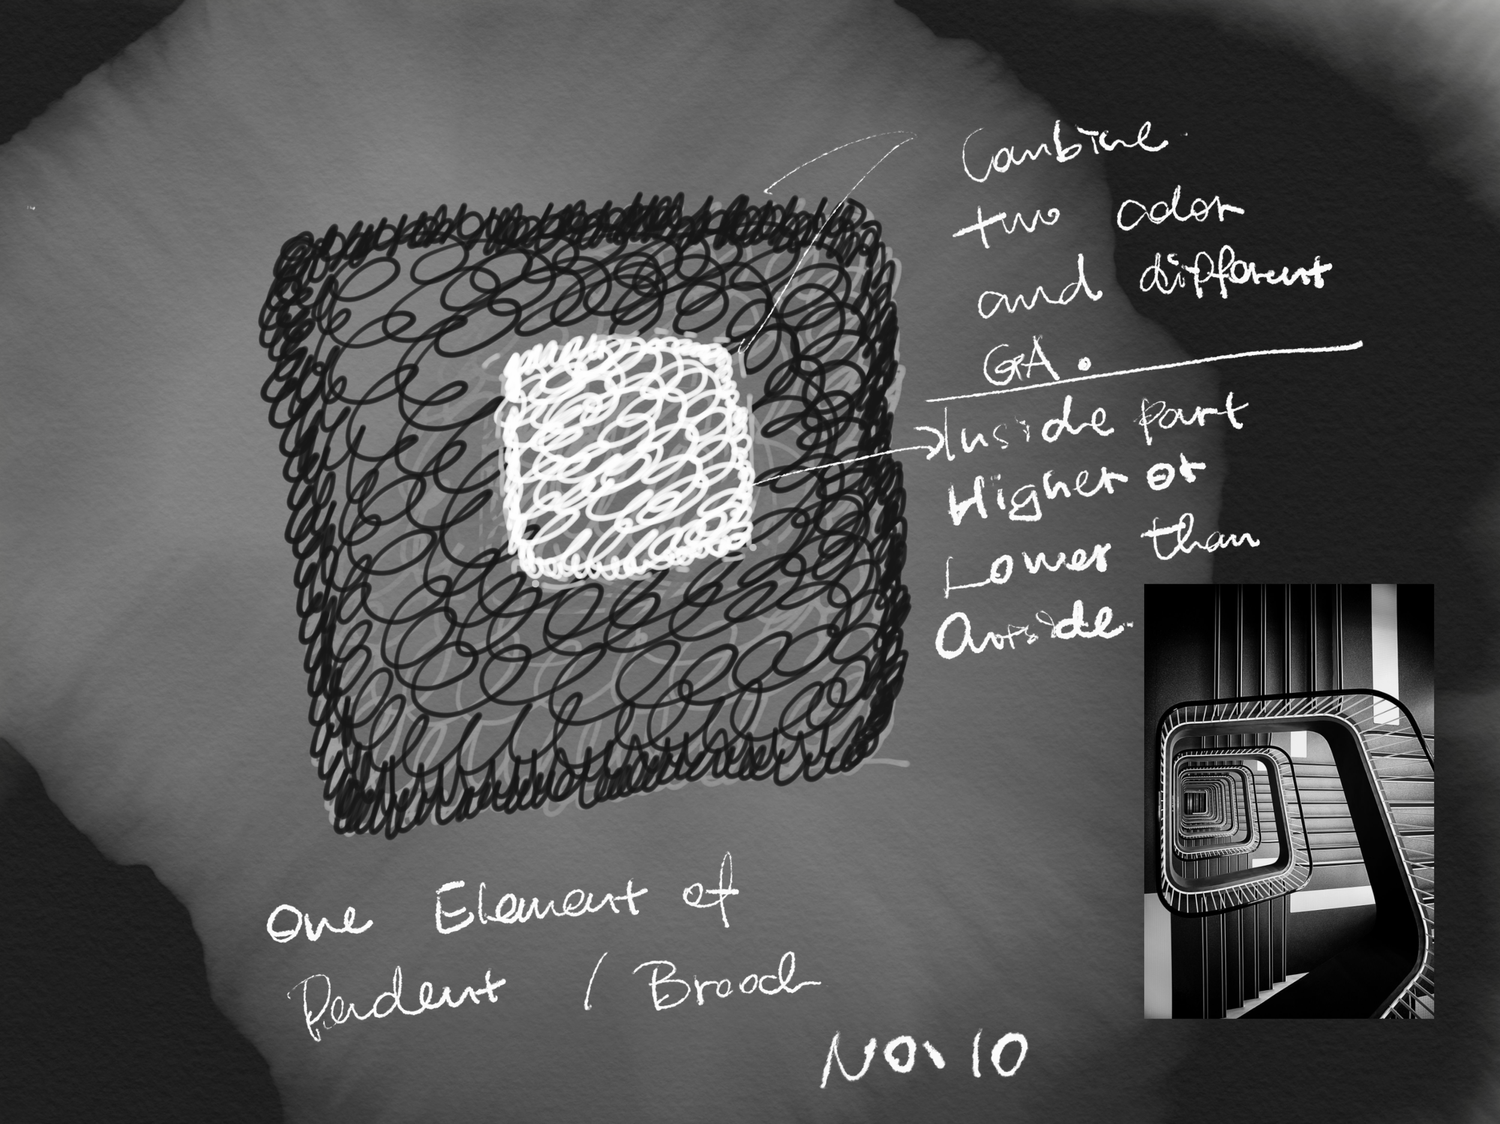 Combine
two color
and different
GA.
Inside part
Higher or
Lower than
Outside.
One Element of
Pendent / Brooch
No. 10